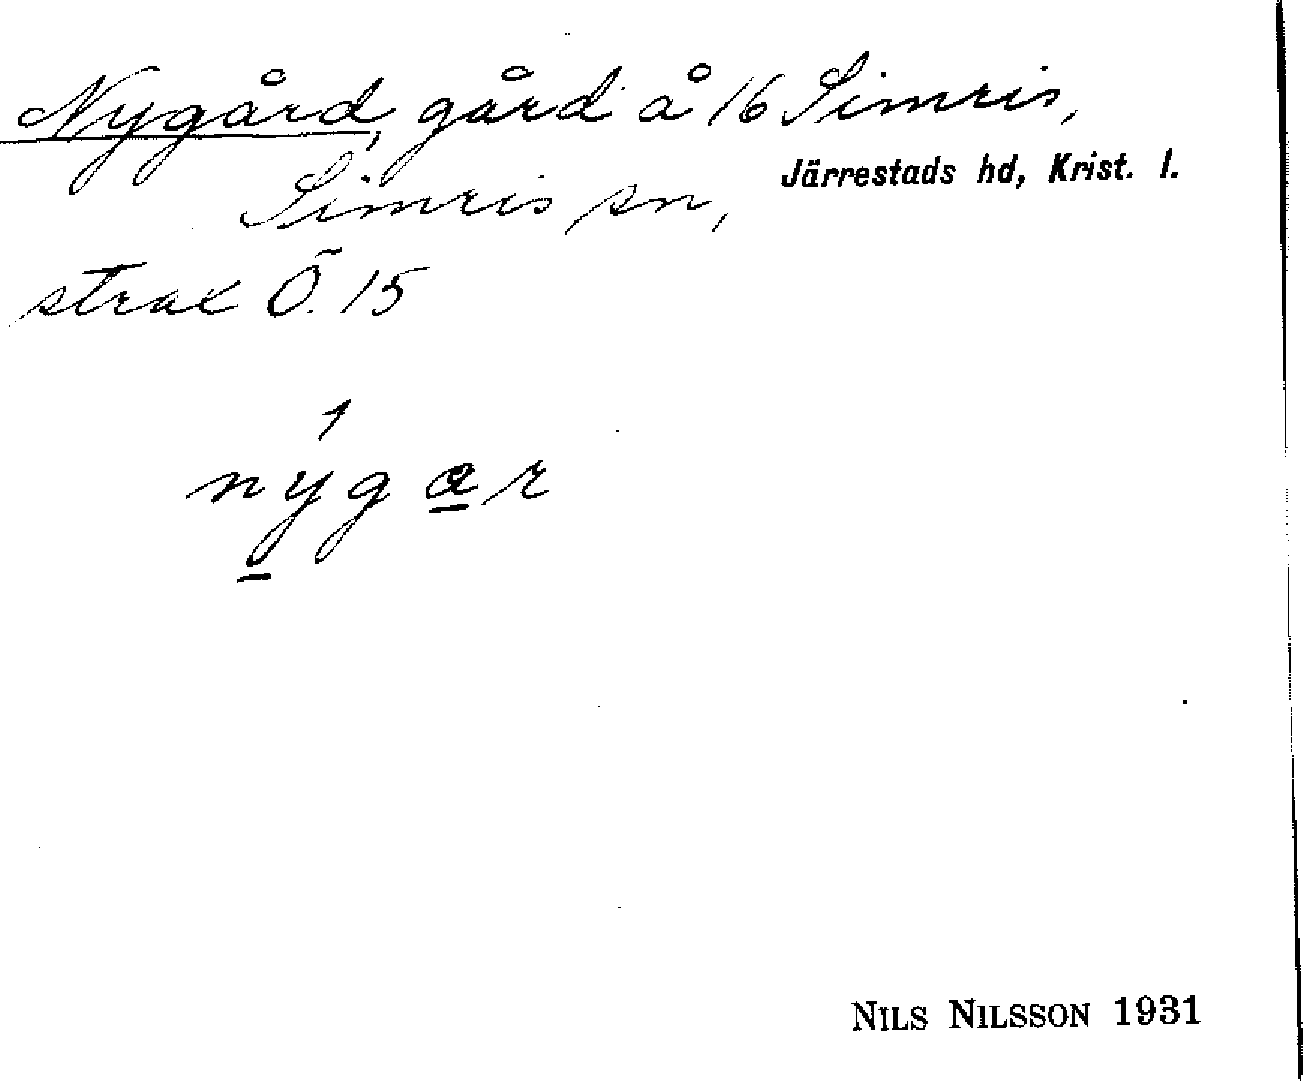 Nygård, gård å 16 Simris,
Simris sn, Järrestads hd, Krist. l.
strax Ö. 15
nýgar
NILS NILSSON 1931